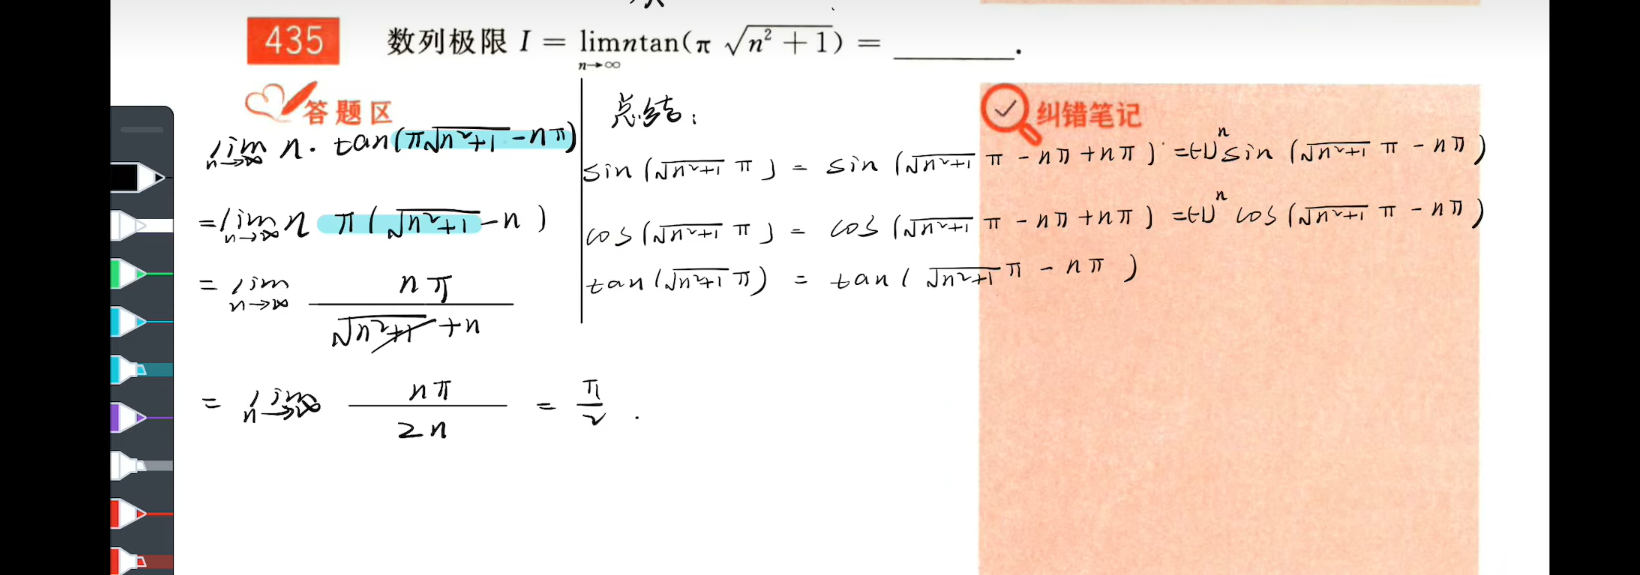 435 数列极限 I = lim n→∞ ntan(π √(n²+1)) = ______.
答题区
lim n→∞ n· tan(π√(n²+1) - nπ)
= lim n→∞ n π(√(n²+1) - n)
= lim n→∞ nπ / (√(n²+1) + n)
= lim n→∞ nπ / 2n = π/2 .
总结:
sin(√(n²+1) π) = sin(√(n²+1) π - nπ + nπ) = (-1)ⁿ sin(√(n²+1) π - nπ)
cos(√(n²+1) π) = cos(√(n²+1) π - nπ + nπ) = (-1)ⁿ cos(√(n²+1) π - nπ)
tan(√(n²+1) π) = tan(√(n²+1) π - nπ)
纠错笔记